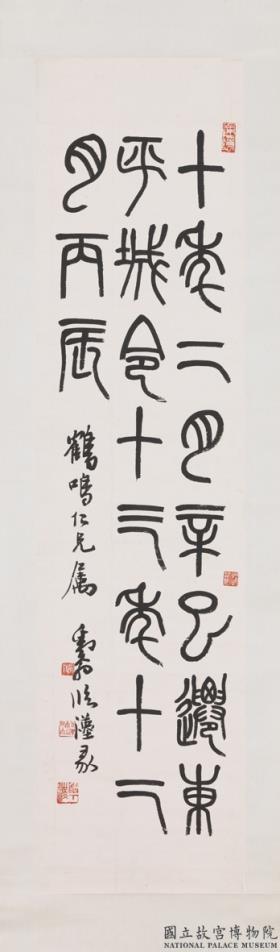 十年二月辛巳遷東
平城令十三年十二
月丙辰
鶴鳴仁兄屬
臨漢篆
國立故宮博物院
NATIONAL PALACE MUSEUM